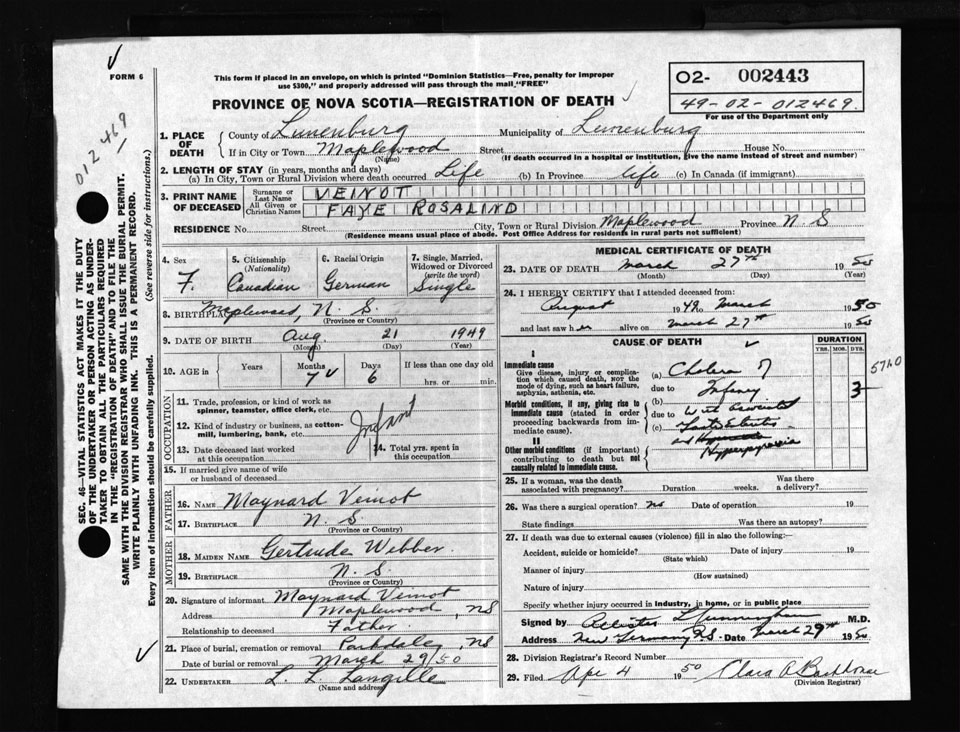 FORM 6
This form if placed in an envelope, on which is printed "Dominion Statistics—Free, penalty for improper
use $300," and properly addressed will pass through the mail "FREE"
PROVINCE OF NOVA SCOTIA—REGISTRATION OF DEATH
02- 002443
49-02-012469
For use of the Department only
012469
SEC. 46—VITAL STATISTICS ACT MAKES IT THE DUTY
OF THE UNDERTAKER OR PERSON ACTING AS UNDER-
TAKER TO OBTAIN ALL THE PARTICULARS REQUIRED
IN THE "REGISTRATION OF DEATH" AND TO FILE THE
SAME WITH THE DIVISION REGISTRAR WHO SHALL ISSUE THE BURIAL PERMIT.
WRITE PLAINLY WITH UNFADING INK. THIS IS A PERMANENT RECORD.
Every item of information should be carefully supplied. (See reverse side for instructions.)
1. PLACE OF DEATH County of Lunenburg Municipality of Lunenburg
If in City or Town Maplewood Street House No.
(Name) (If death occurred in a hospital or institution, give the name instead of street and number)
2. LENGTH OF STAY (in years, months and days)
(a) In City, Town or Rural Division where death occurred Life (b) In Province life (c) In Canada (if immigrant)
3. PRINT NAME OF DECEASED Surname or Last Name VEINOT
All Given or Christian Names FAYE ROSALIND
RESIDENCE No. Street City, Town or Rural Division Maplewood Province N S
(Residence means usual place of abode. Post Office Address for residents in rural parts not sufficient)
4. Sex 5. Citizenship (Nationality) 6. Racial Origin 7. Single, Married, Widowed or Divorced (write the word)
F. Canadian German Single
8. BIRTHPLACE Maplewood, N. S.
(Province or Country)
9. DATE OF BIRTH Aug. 21 1949
(Month) (Day) (Year)
10. AGE in Years Months Days If less than one day old
7 6 hrs. or min.
OCCUPATION
11. Trade, profession, or kind of work as
spinner, teamster, office clerk, etc.
12. Kind of industry or business, as cotton-
mill, lumbering, bank, etc.
Infant
13. Date deceased last worked
at this occupation
14. Total yrs. spent in
this occupation
15. If married give name of wife
or husband of deceased
FATHER
16. NAME Maynard Veinot
17. BIRTHPLACE N. S
(Province or Country)
MOTHER
18. MAIDEN NAME Gertrude Webber.
19. BIRTHPLACE N. S.
(Province or Country)
20. Signature of informant Maynard Veinot
Address Maplewood, NS
Relationship to deceased Father.
21. Place of burial, cremation or removal Parkdale, NS
Date of burial or removal March 29/50
22. UNDERTAKER L. L. Langille
(Name and address)
MEDICAL CERTIFICATE OF DEATH
23. DATE OF DEATH March 27th 1950
(Month) (Day) (Year)
24. I HEREBY CERTIFY that I attended deceased from:
August 1949 to March 1950
and last saw her alive on March 27th 1950
CAUSE OF DEATH
DURATION
YRS. MOS. DYS.
I
Immediate cause
Give disease, injury or compli-
cation which caused death, NOT the
mode of dying, such as heart failure,
asphyxia, asthenia, etc.
(a) Cholera
due to
Morbid conditions, if any, giving rise to
immediate cause (stated in order
proceeding backwards from im-
mediate cause).
(b) Infancy 3
due to
(c)
5710
II
Other morbid conditions (if important)
contributing to death but not
causally related to immediate cause.
Hyperpyrexia
25. If a woman, was the death
associated with pregnancy? Duration weeks. Was there
a delivery?
26. Was there a surgical operation? no Date of operation 19
State findings Was there an autopsy?
27. If death was due to external causes (violence) fill in also the following:—
Accident, suicide or homicide? Date of injury 19
(State which)
Manner of injury
(How sustained)
Nature of injury
Specify whether injury occurred in industry, in home, or in public place
Signed by M.D.
Address New Germany N.S. Date March 29th 1950
28. Division Registrar's Record Number
29. Filed Apr 4 1950 Clara
(Division Registrar)